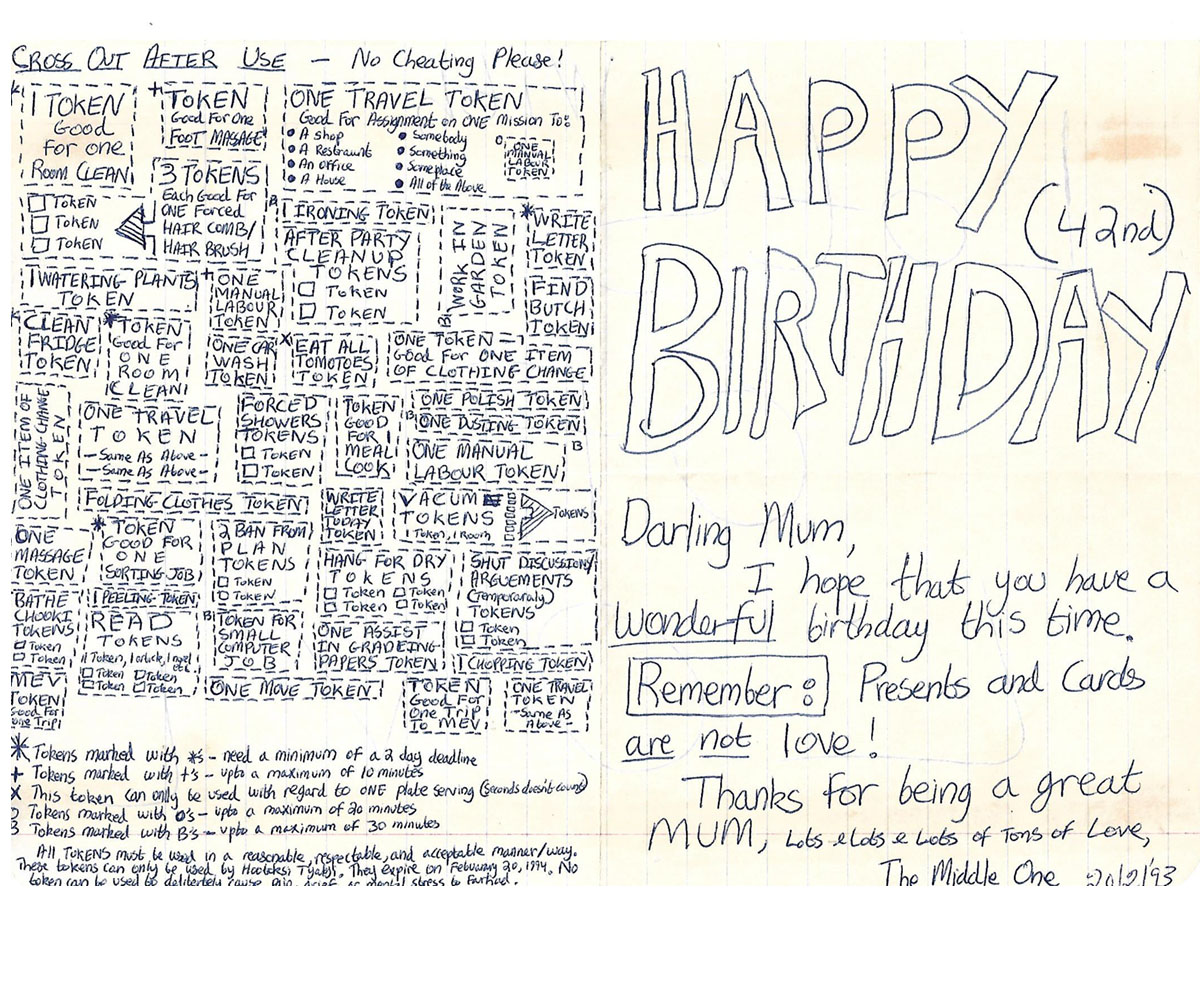 CROSS OUT AFTER USE – No Cheating Please!
1 TOKEN
Good
for one
ROOM CLEAN
+ TOKEN
Good For One
FOOT MASSAGE
ONE TRAVEL TOKEN
Good For Assignment on ONE Mission To:
• A shop
• A Restraunt
• An Office
• A House
• Somebody
• Something
• Someplace
• All of the Above
ONE
MANUAL
LABOUR
TOKEN
3 TOKENS
Each Good For
ONE Forced
HAIR COMB/
HAIR BRUSH
TOKEN
TOKEN
TOKEN
1 IRONING TOKEN
AFTER PARTY
CLEANUP
TOKENS
TOKEN
TOKEN
WORK IN
GARDEN
TOKEN
* WRITE
LETTER
TOKEN
1 WATERING PLANTS
TOKEN
+ ONE
MANUAL
LABOUR
TOKEN
FIND
BUTCH
TOKEN
CLEAN
FRIDGE
TOKEN
* TOKEN
Good For
ONE
ROOM
CLEAN
ONE CAR
WASH
TOKEN
X EAT ALL
TOMOTOES
TOKEN
ONE TOKEN –
Good For ONE ITEM
OF CLOTHING CHANGE
ONE ITEM OF
CLOTHING CHANGE
TOKEN
ONE TRAVEL
TOKEN
– Same As Above –
– Same As Above –
FORCED
SHOWERS
TOKENS
TOKEN
TOKEN
TOKEN
GOOD
FOR
MEAL
COOK
ONE POLISH TOKEN
B ONE DUSTING TOKEN
ONE MANUAL B
LABOUR TOKEN
FOLDING CLOTHES TOKEN
WRITE
LETTER
TODAY
TOKEN
VACUM
TOKENS
1 Token, 1 Room
TOKENS
ONE
MASSAGE
TOKEN
* TOKEN
GOOD FOR
ONE
SORTING JOB
2 BAN FROM
PLAN
TOKENS
TOKEN
TOKEN
HANG FOR DRY
TOKENS
Token Token
Token Token
SHUT DISCUSSION/
ARGUEMENTS
(Temporaraly)
TOKENS
Token
Token
BATHE
CHOOKI
TOKENS
Token
Token
1 PEELING TOKEN
READ
TOKENS
Token Token
Token Token
B TOKEN FOR
SMALL
COMPUTER
JOB
ONE ASSIST
IN GRADEING
PAPERS TOKEN
1 CHOPPING TOKEN
MEV
TOKEN
Good For
One Trip
ONE MOVE TOKEN
TOKEN
Good For
One Trip
To MEV
ONE TRAVEL
TOKEN
–Same As
Above–
* Tokens marked with *s – need a minimum of a 2 day deadline
+ Tokens marked with +'s – upto a maximum of 10 minutes
X This token can only be used with regard to ONE plate serving (seconds doesn't count)
Tokens marked with O's – upto a maximum of 20 minutes
Tokens marked with B's – upto a maximum of 30 minutes
All TOKENS must be used in a reasonable, respectable, and acceptable manner/way.
These tokens can only be used by They expire on Febuary 20, 1994. No
token can be used to cause mental stress to Farhad.
HAPPY
(42nd)
BIRTHDAY
Darling Mum,
I hope that you have a
wonderful birthday this time.
Remember: Presents and Cards
are not love!
Thanks for being a great
MUM, Lots & Lots & Lots of Tons of Love,
The Middle One 20/2/93